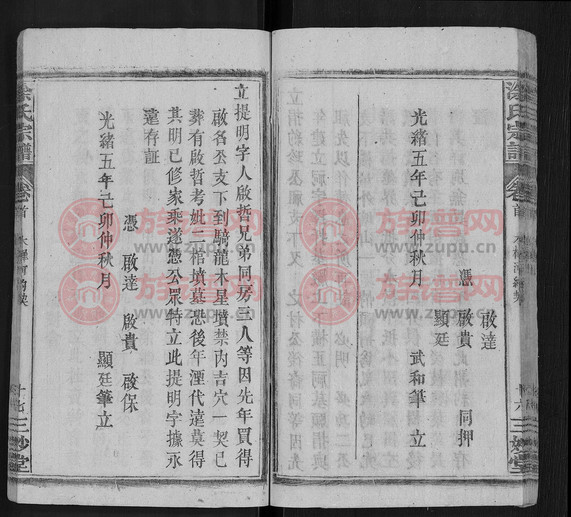 涂氏宗譜
卷首
啟達
憑 啟貴 同押
顯廷
武和筆 立
光緒五年己卯仲秋月
十六 三妙堂
立提明字人啟哲兄弟同房三人等因先年買得
啟名公支下到騎龍木星墳禁內吉穴一契已
葬有啟哲考妣二棺墳墓恐後年湮代遠莫得
其明已修家乘遂憑公眾特立此提明字據永
遠有証
憑 啟達 啟貴 啟保
顯廷筆立
光緒五年己卯仲秋月
涂氏宗譜
卷首
十七 三妙堂
族譜网
www.zupu.cn
族譜网
www.zupu.cn